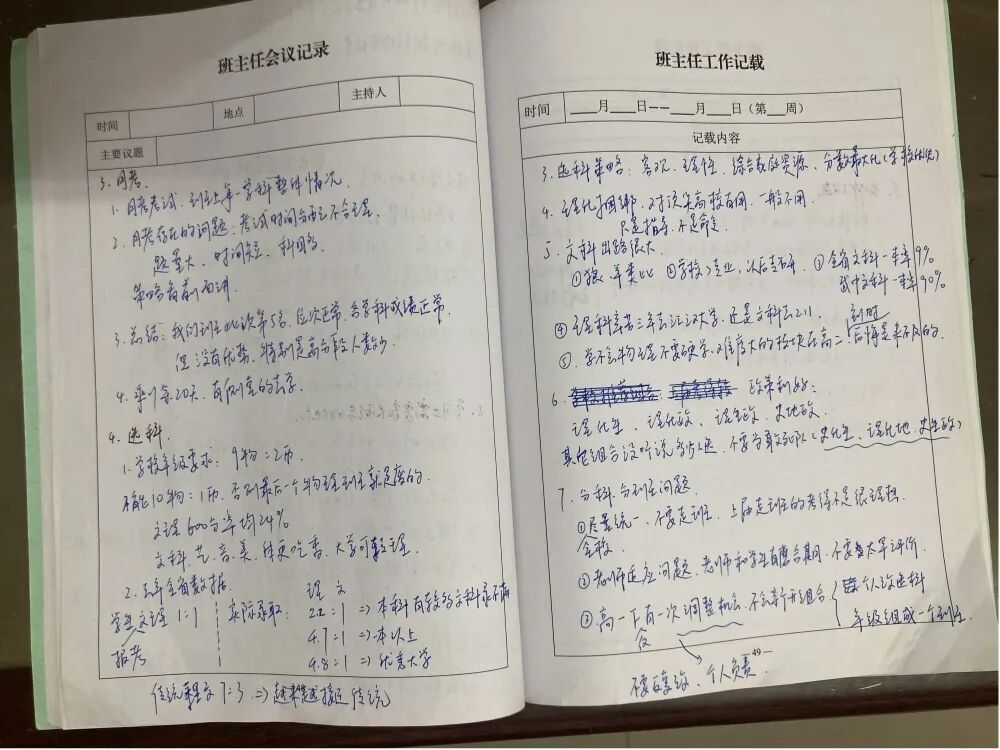 班主任会议记录
时间 地点 主持人
主要议题
3. 月考.
1. 月考考试, 到班上每一学科整体情况
2. 月考存在的问题: 考试时间分配不合理.
题量大、时间短、科目多
策略看前面讲.
3. 总结: 我们班主此次第5名, 位次正常, 各学科成绩正常.
但没有优势, 特别是高分段人数少.
4. 剩余20天, 有侧重的去学.
4. 选科.
1. 学校年级要求: 9物=2历
不能10物:1历, 否则最后一个物理班就是废的
文理600分率均24%
文科、艺、音、美、体更吃香, 大学可转理
2. 去年全省数据. 理 文
学生文理 1:1 实际录取: 2.2:1 => 本科有较多文科录不满
报考 4.7:1 => 一本以上
4.8:1 => 优秀大学
传统理文7:3 => 越来越接近传统
班主任工作记载
时间 ___月___日——___月___日(第___周)
记载内容
3. 选科策略: 客观、理性、综合教改资源、分数最大化(学校优势)
4. 理化捆绑, 对顶尖高校有用, 一般不用
只是指导, 不是命令
5. 文科出路很大
①狼、羊类比 ②学校>专业, 以后去否研 ③全省文科一本率9%
我中文科一本率90%
④理科苦苦三年去江汉大学, 还是文科去211.
⑤学不会物理不要硬学, 难度大的板块在高二, 到时后悔是来不及的.
6. 政策利好:
理化生、理化政、理生政、史地政
其他组合没听说多少人选, 不要当敢死队(史化生, 理化地, 史生政)
7. 分科分到班问题
①尽量统一, 不要走班, 上届走班的考得不是很理想.
全校
②老师适应问题, 老师和学生有磨合期, 不要太早评价.
③高一下有一次调整机会, 不会新开组合 个人改选科
会 年级组成一个到班.
— 49 —
不要反复改, 个人负责.